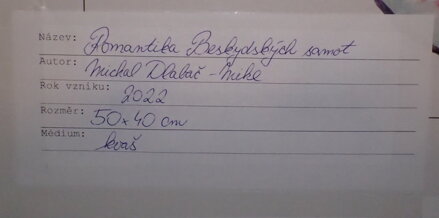 Název: Romantika Beskydských samot
Autor: Michal Dlabač - Mike
Rok vzniku: 2022
Rozměr: 50x40 cm
Médium: kvaš